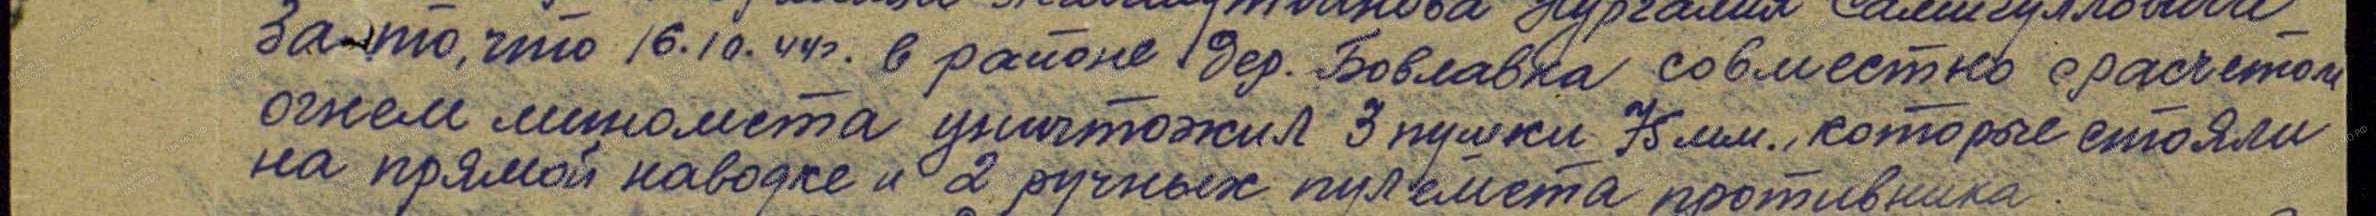 Нургалия
За то, что 16.10.44г. в районе дер. Бовлавка совместно с расчетом
огнем миномета уничтожил 3 пушки 75 мм., которые стояли
на прямой наводке и 2 ручных пулемета противника.